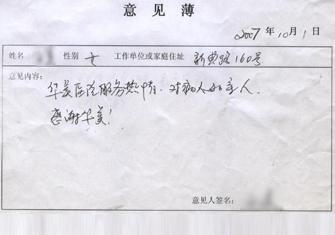 意见薄
2007年10月1日
姓名 性别 女 工作单位或家庭住址 新典路160号
意见内容:
华美医院服务热情. 对病人如亲人.
感谢华美!
意见人签名: